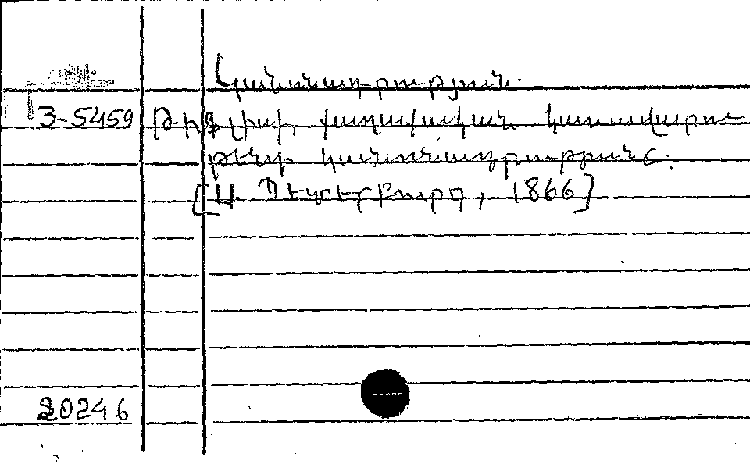 Կանոնադրություն
3-5459 Թիֆլիսի քաղաքական կառավարու-
թենի կանոնադրությունը.
[Ս Պետերբուրգ, 1866]
20246